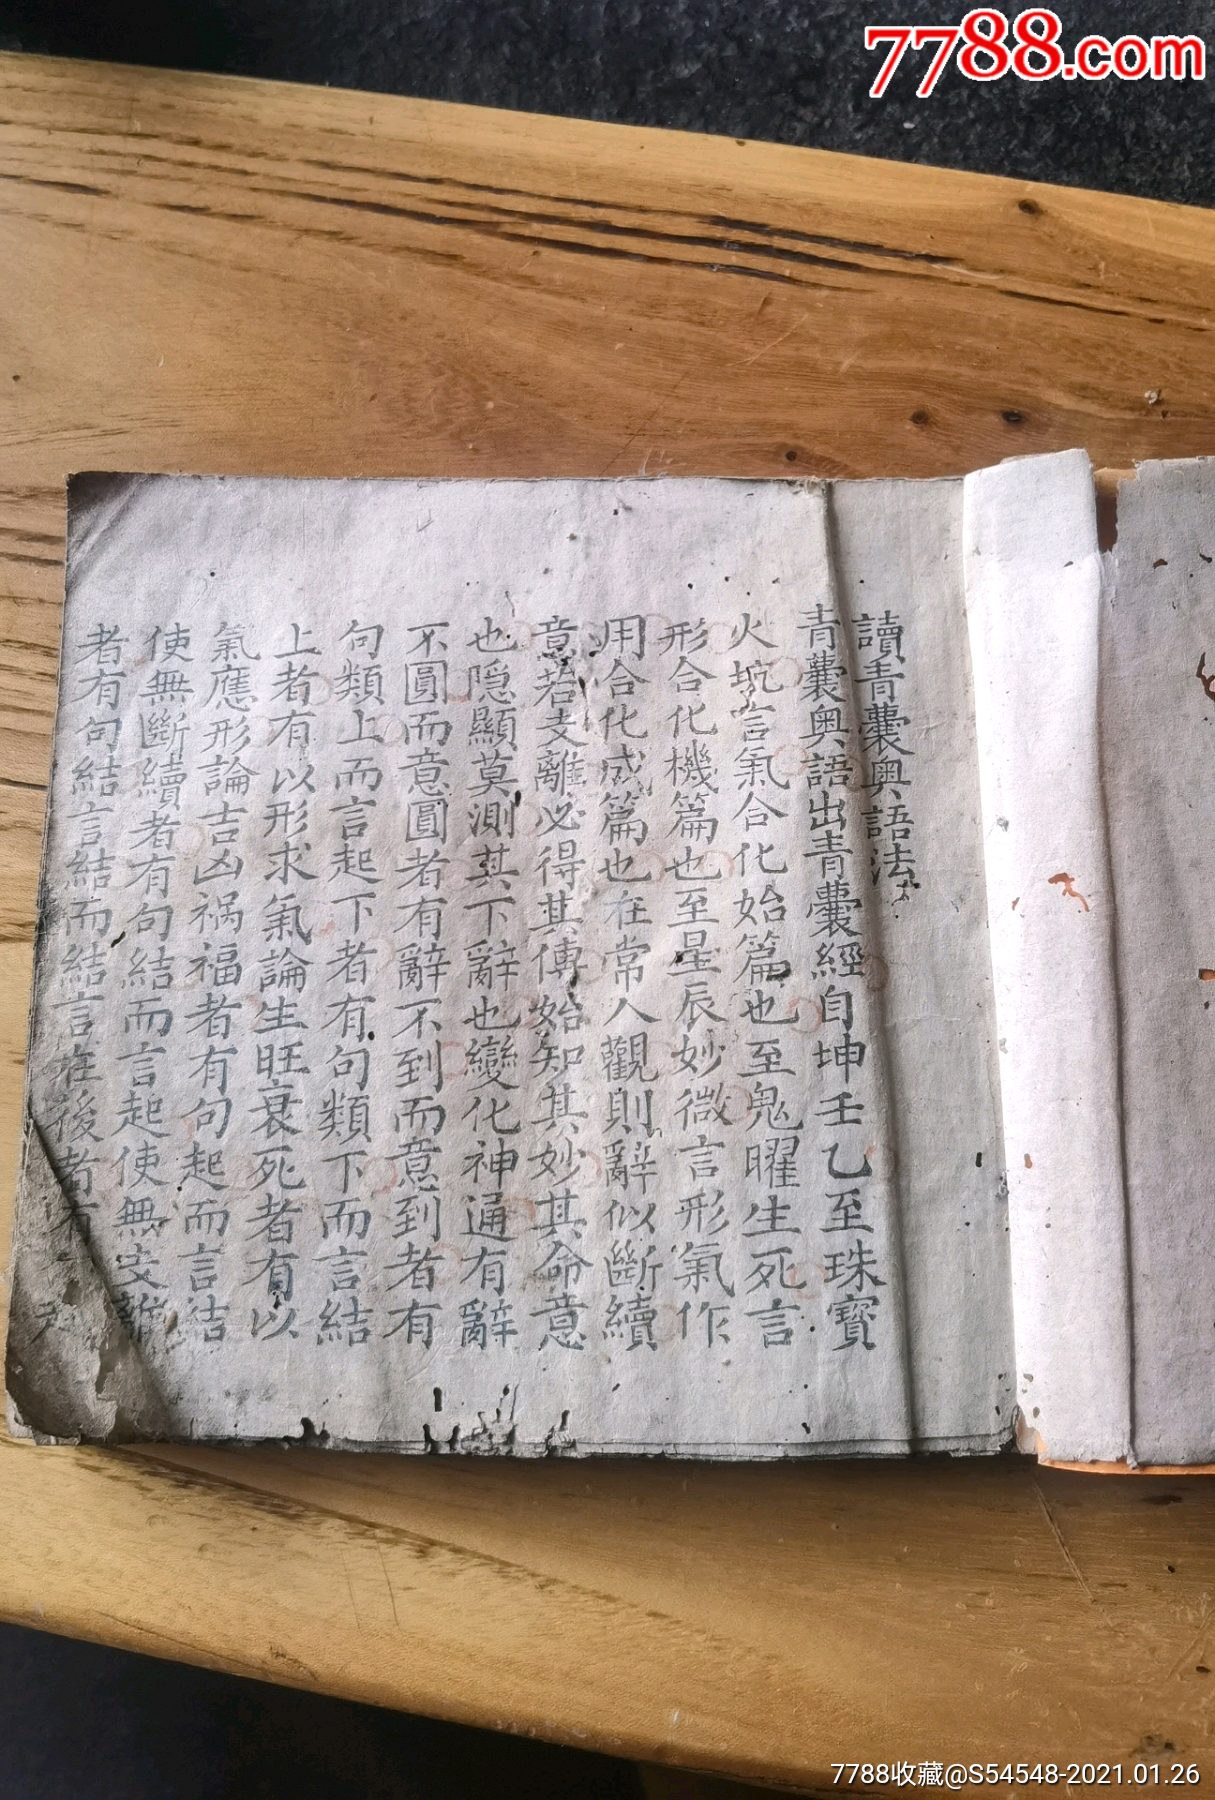 7788.com
讀青囊奥語法
青囊奥語出青囊經自坤壬乙至珠寶
火坑言氣合化始篇也至鬼曜生死言
形合化機篇也至星辰妙微言形氣作
用合化成篇也在常人觀則辭似斷續
意若支離必得其傳始知其妙其命意
也隠顯莫測其下辭也變化神通有辭
不圓而意圓者有辭不到而意到者有
句類上而言起下者有句類下而言結
上者有以形求氣論生旺衰死者有以
氣應形論吉凶禍福者有句起而言結
使無斷續者有句結而言起使無支離
者有句結言結而結言在後者有
7788收藏@S54548-2021.01.26